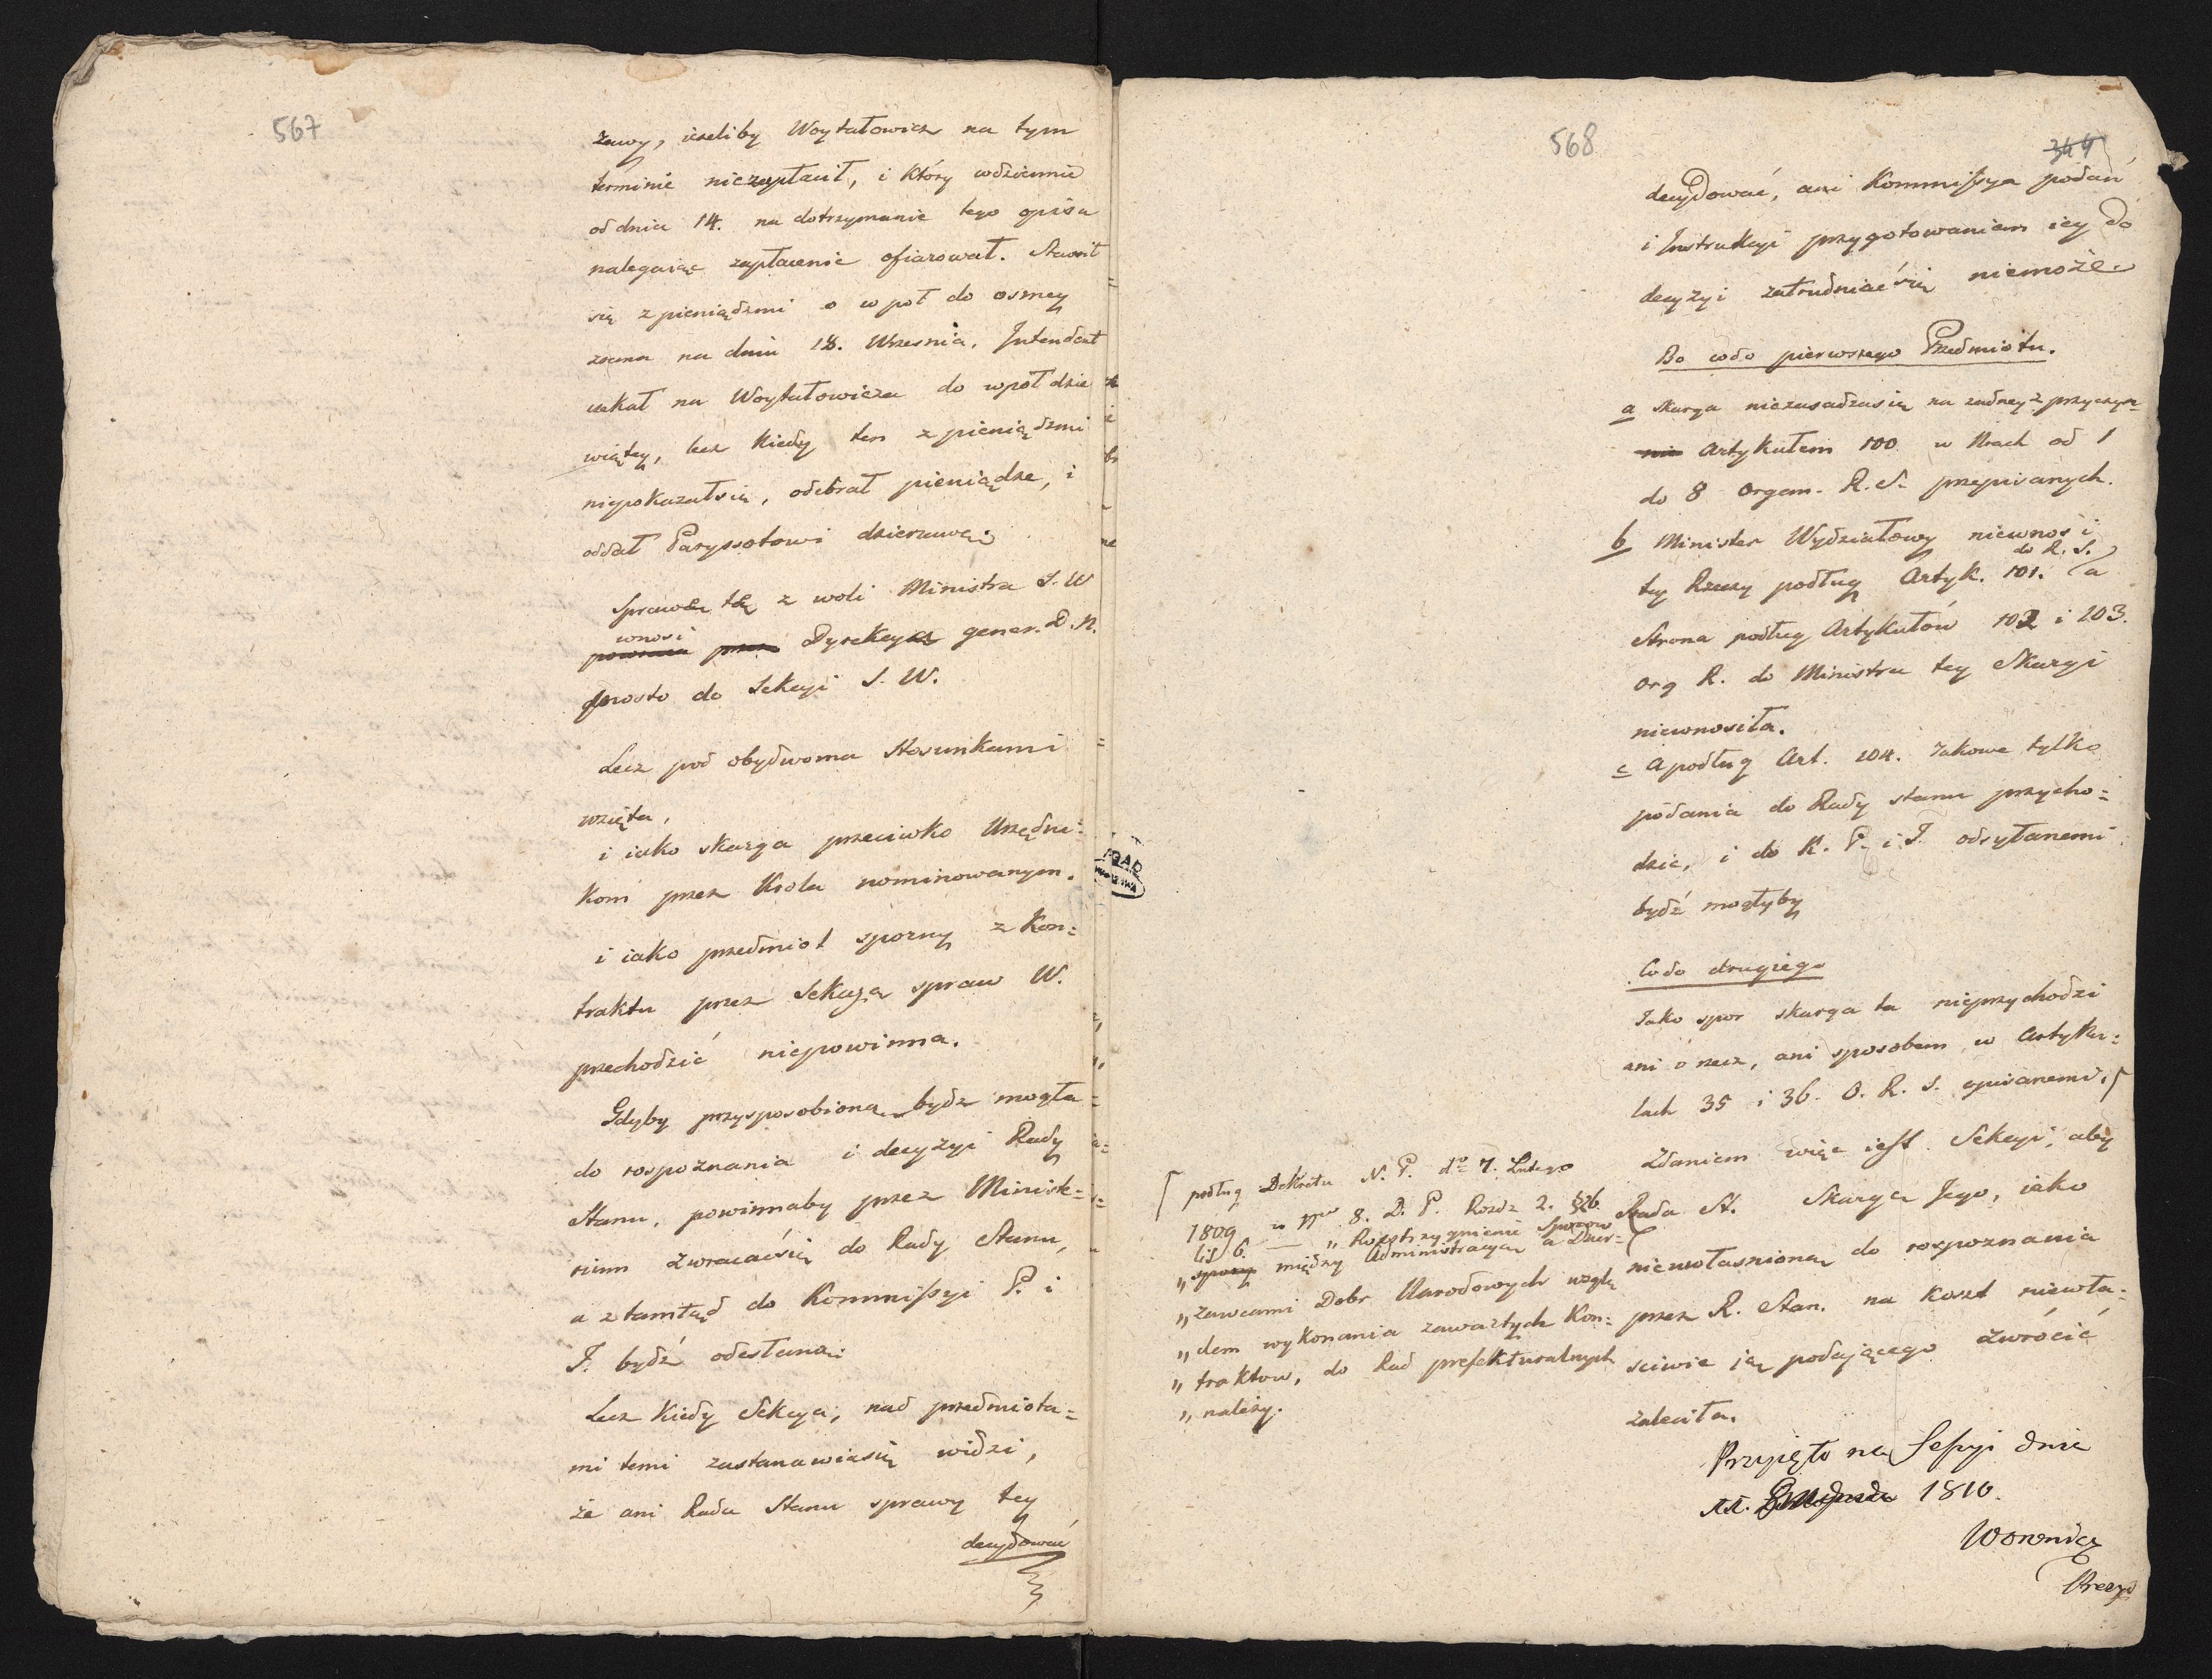 567
żawy, ieżeliby Woytułowicz na tym
terminie niezapłacił, i który codziennie
od dnia 14. na dotrzymanie tego opisu
nalegaiąc zapłacenie ofiarował. Stawił
się z pieniądzmi o wpoł do osmey
zrana na dniu 18. Wrzesnia. Intendent
czekał na Woytułowicza do wpoł dzie
wiątey, lecz kiedy ten z pieniądzmi
niepokazałsię, odebrał pieniądze, i
oddał Paryssotowi dzierzawę.
Sprawę tę z woli Ministra S. W
wnosi
Dyrekcya gener. D. N.
prosto do Sekcyi S. W.
Lecz pod obydwoma Stosunkami
wzięta,
i iako skarga przeciwko Urzędni=
kom przez Krola nominowanym.
i iako przedmiot sporny z Kon=
traktu przez Sekcyą spraw W.
przechodzić niepowinna.
Gdyby przysposobioną bydz mogła
do rospoznania i decyzyi Rady
Stanu, powinnaby przez Minist=
rium zwracaćsię do Rady Stanu,
a ztamtąd do Kommissyi P. i
I. bydź odesłana.
Lecz kiedy Sekcya, nad przedmiota=
mi temi zastanawiasię widzi,
że ani Rada Stanu sprawy tey
decydować
568
344
decydować, ani Kommissya podań
i Instrukcyi przygotowaniem iey do
decyzyi zatrudniaćsię niemoże.
Bo codo pierwszego Przedmiotu.
a skarga niezasadzasię na żadney z przyczyn
Artykułem 100 w Nrach od 1
do 8 Organ. R. S. przepisanych.
b Minister Wydziałowy niewnosi
do R. S.
tey Rzeczy podług Artyk. 101. a
Strona podług Artykułów 102 i 103.
Org R. do Ministra tey Skargi
niewnosiła.
c A podług Art. 104. Takowe tylko
podania do Rady stanu przycho=
dzić, i do K. P. i I. odsyłanemi
bydź mogłyby
Codo drugiego
Iako spor skarga ta nieprzychodzi
ani o rzecz, ani sposobem w Artyku=
łach 35 i 36. O. R. S. opisanemi.
Zdaniem więc iest Sekcyi, aby
Rada St. Skargę Jego, iako
niewłasnioną do rospoznania
przez R. Stan. na koszt niewła=
sciwie ią podającego zwrócić
zaleciła.
podług Dekretu N. P. do 7. Lutego
1809 w Nrze 8. D. P. Rozdz 2. §26
lit 6. — „ Rozstrzygnienie Sporow
„ między Administracyą a Dzier=
„ zawcami Dobr Narodowych wzglę
„ dem wykonania zawartych Kon=
„ traktow, do Rad prefekturalnych
„ należy.
Przyięto na Sessyi dnia
1810.
Woronicz
Prezyd